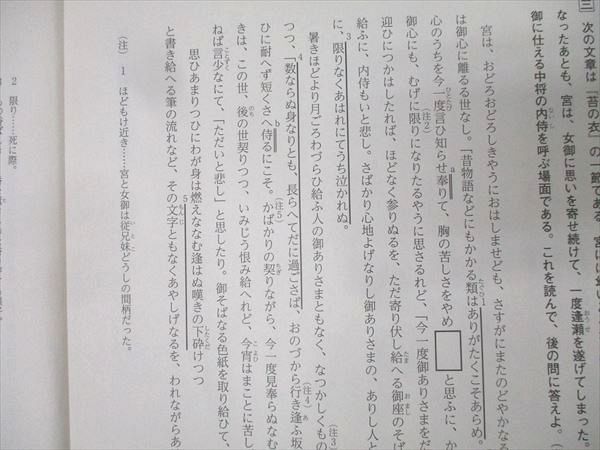 三 次の文章は「苔の衣」の一節である。
なったあとも、宮は、女御に思いを寄せ続けて、一度逢瀬を遂げてしまった。
御に仕える中将の内侍を呼ぶ場面である。これを読んで、後の問に答えよ。
宮は、おどろおどろしきやうにおはしませども、さすがにまたのどやかなる
は御心に離るる世なし。「昔物語などにもかかる類はありがたくこそあらめ。
心のうちを今一度言ひ知らせ奉りて、胸の苦しさをやめ□と思ふに、か
御心にも、むげに限りになりたるやうに思さるれど、「今一度御ありさまをだ
迎ひにつかはしたれば、ほどなく参りぬるを、ただ寄り伏し給へる御座のそば
給ふに、内侍もいと悲し。さばかり心地よげなりし御ありさまの、ありし人と
に、限りなくあはれにてうち泣かれぬ。
暑きほどより月ごろわづらひ給ふ人の御ありさまともなく、なつかしくもの
つつ、「数ならぬ身なりとも、長らへてだに過ごさば、おのづから行き逢ふ坂
ひに耐へず短くさへ侍るにこそ。かばかりの契りながら、今一度見奉らぬなむ
きは、この世、後の世契りつつ、いみじう恨み給へれど、今宵はまことに苦し
ねば言少なにて、「ただいと悲し」と思したり。御そばなる色紙を取り給ひて、
思ひあまりつひにわが身は燃えななむ逢はぬ嘆きの下砕けつつ
と書き給へる筆の流れなど、その文字ともなくあやしげなるを、われながらあ
(注) 1 ほどもけ近き……宮と女御は従兄妹どうしの間柄だった。
2 限り……死に際。